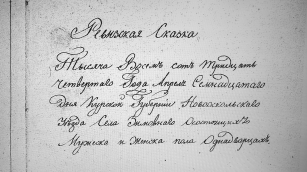 Ревизская Сказка
Тысяча Восемь сотъ тридцать
четвертаго Года Апреля Семнадцатаго
дня Курской Губернии Новооскольскаго
Уезда Села Зимовнаго О состоящихъ
Мужеска и Женска пола Однадворцахъ